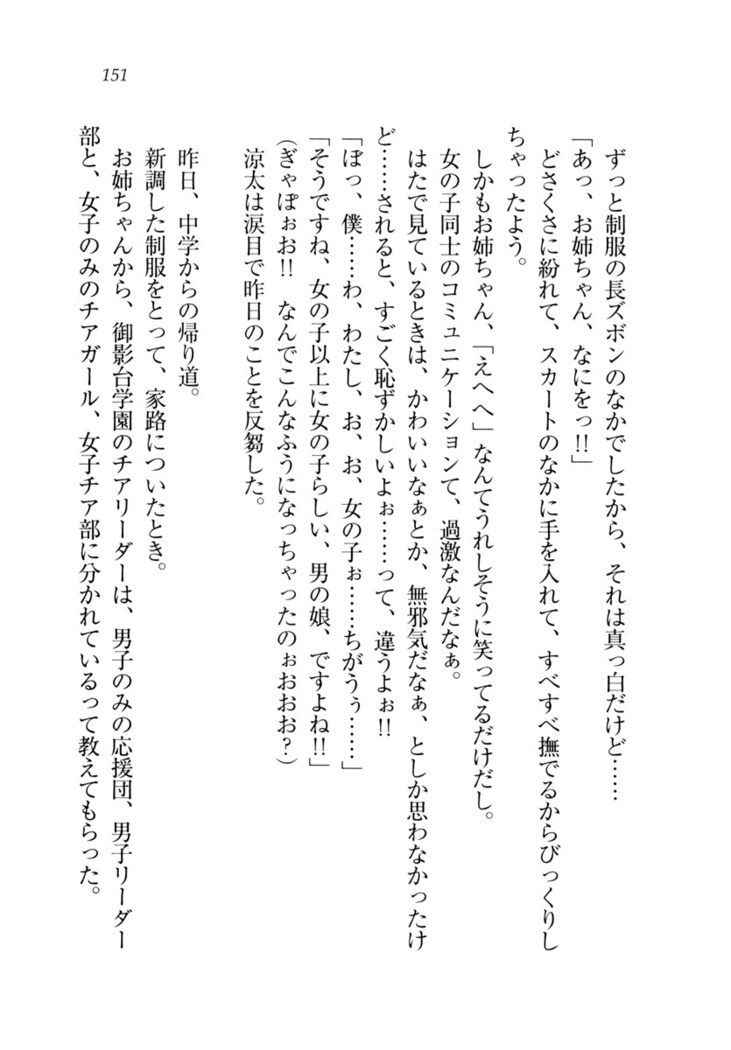 151
ずっと制服の長ズボンのなかでしたから、それは真っ白だけど……
「あっ、お姉ちゃん、なにをっ!!」
どさくさに紛れて、スカートのなかに手を入れて、すべすべ撫でるからびっくりし
ちゃったよう。
しかもお姉ちゃん、「えへへ」なんてうれしそうに笑ってるだけだし。
女の子同士のコミュニケーションて、過激なんだなぁ。
はたで見ているときは、かわいいなぁとか、無邪気だなぁ、としか思わなかったけ
ど……されると、すごく恥ずかしいよぉ……って、違うよぉ!!
「ぼっ、僕……わ、わたし、お、お、女の子ぉ……ちがうぅ……」
「そうですね、女の子以上に女の子らしい、男の娘、ですよね!!」
(ぎゃぽぉぉ!! なんでこんなふうになっちゃったのぉおおお?)
涼太は涙目で昨日のことを反芻した。
昨日、中学からの帰り道。
新調した制服をとって、家路についたとき。
お姉ちゃんから、御影台学園のチアリーダーは、男子のみの応援団、男子リーダー
部と、女子のみのチアガール、女子チア部に分かれているって教えてもらった。